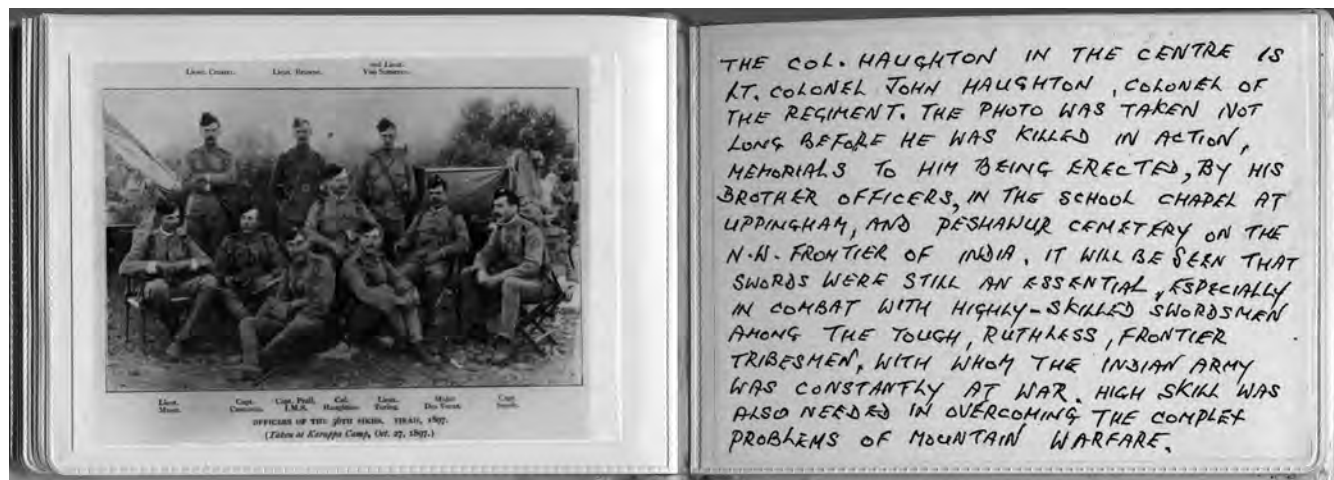 Lieut. Van Someren.
OFFICERS OF THE 36TH SIKHS. TIRAH, 1897.
(Taken at Karappa Camp, Oct. 27, 1897.)
Lieut. Munn.
Capt. Custance.
Capt. Prall, I.M.S.
Col. Haughton.
Lieut. Turing.
Major Des Voeux.
Capt.
THE COL. HAUGHTON IN THE CENTRE IS
LT. COLONEL JOHN HAUGHTON, COLONEL OF
THE REGIMENT. THE PHOTO WAS TAKEN NOT
LONG BEFORE HE WAS KILLED IN ACTION,
MEMORIALS TO HIM BEING ERECTED, BY HIS
BROTHER OFFICERS, IN THE SCHOOL CHAPEL AT
UPPINGHAM, AND PESHAWUR CEMETERY ON THE
N.W. FRONTIER OF INDIA. IT WILL BE SEEN THAT
SWORDS WERE STILL AN ESSENTIAL, ESPECIALLY
IN COMBAT WITH HIGHLY-SKILLED SWORDSMEN
AMONG THE TOUGH, RUTHLESS, FRONTIER
TRIBESMEN, WITH WHOM THE INDIAN ARMY
WAS CONSTANTLY AT WAR. HIGH SKILL WAS
ALSO NEEDED IN OVERCOMING THE COMPLEX
PROBLEMS OF MOUNTAIN WARFARE.